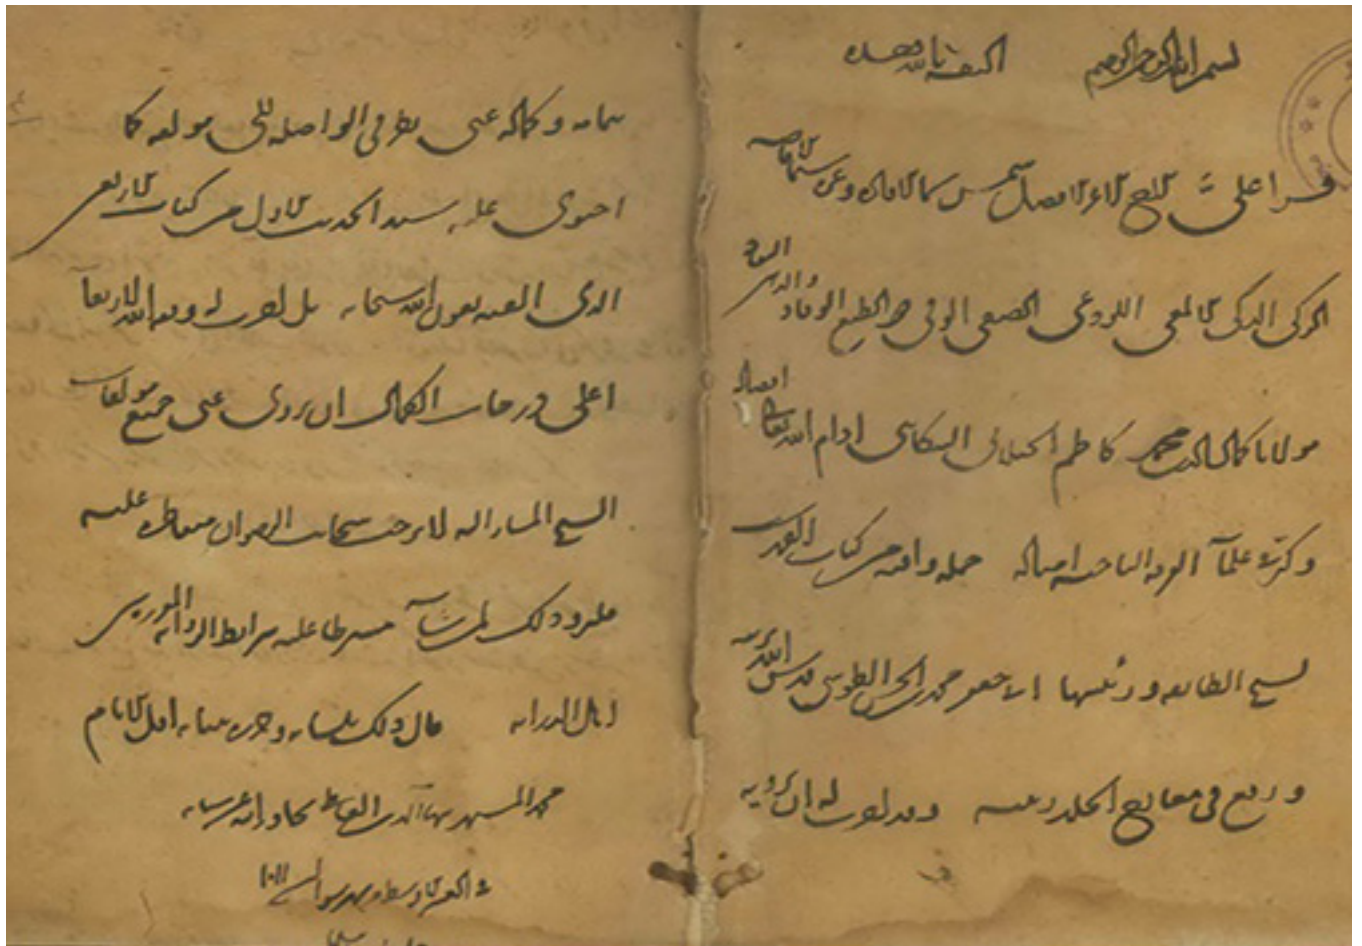 بسم الله الرحمن الرحيم الثقة بالله وحده
قرا علي الاخ الاعز الافضل شمس سما الافادة وعز سما الافاضة
الزكي الذكي الالمعي اللوذعي الصفي الوفي ذو الطبع الوقاد والذهن النقاد
مولانا كمال الدين محمد كاظم الجيلاني التنكابني ادام الله تعالى افضاله
وكثر في علمآ الفرقة الناجية امثاله جملة وافية من كتاب التهذيب
لشيخ الطايفة ورئيسها ابي جعفر محمد بن الحسن الطوسي قدس الله تربته
ورفع في معارج الخلد رتبته وقد اجزت له ان يرويه
بتمامه وكماله عني بطرقي الواصلة الى مولفه كما
احتوى عليه سند الحديث الاول من كتاب الاربعين
الذي الفته بعون الله سبحانه بل اجزت له وفقه الله لارتقآ
اعلى درجات الكمال ان يروي عني جميع مولفات
الشيخ المشار اليه لا برحت سحاب الرضوان متقاطرة عليه
فليرو ذلك لمن شآء مشترطا عليه شرايط الرواية المورثة
قال ذلك بلسانه وحرره ببنانه اقل الانام
محمد المشتهر ببهآء الدين العاملي تجاوز الله عن سيئاته
في العشر الاوسط من شهر شوال سنة ١٠١١